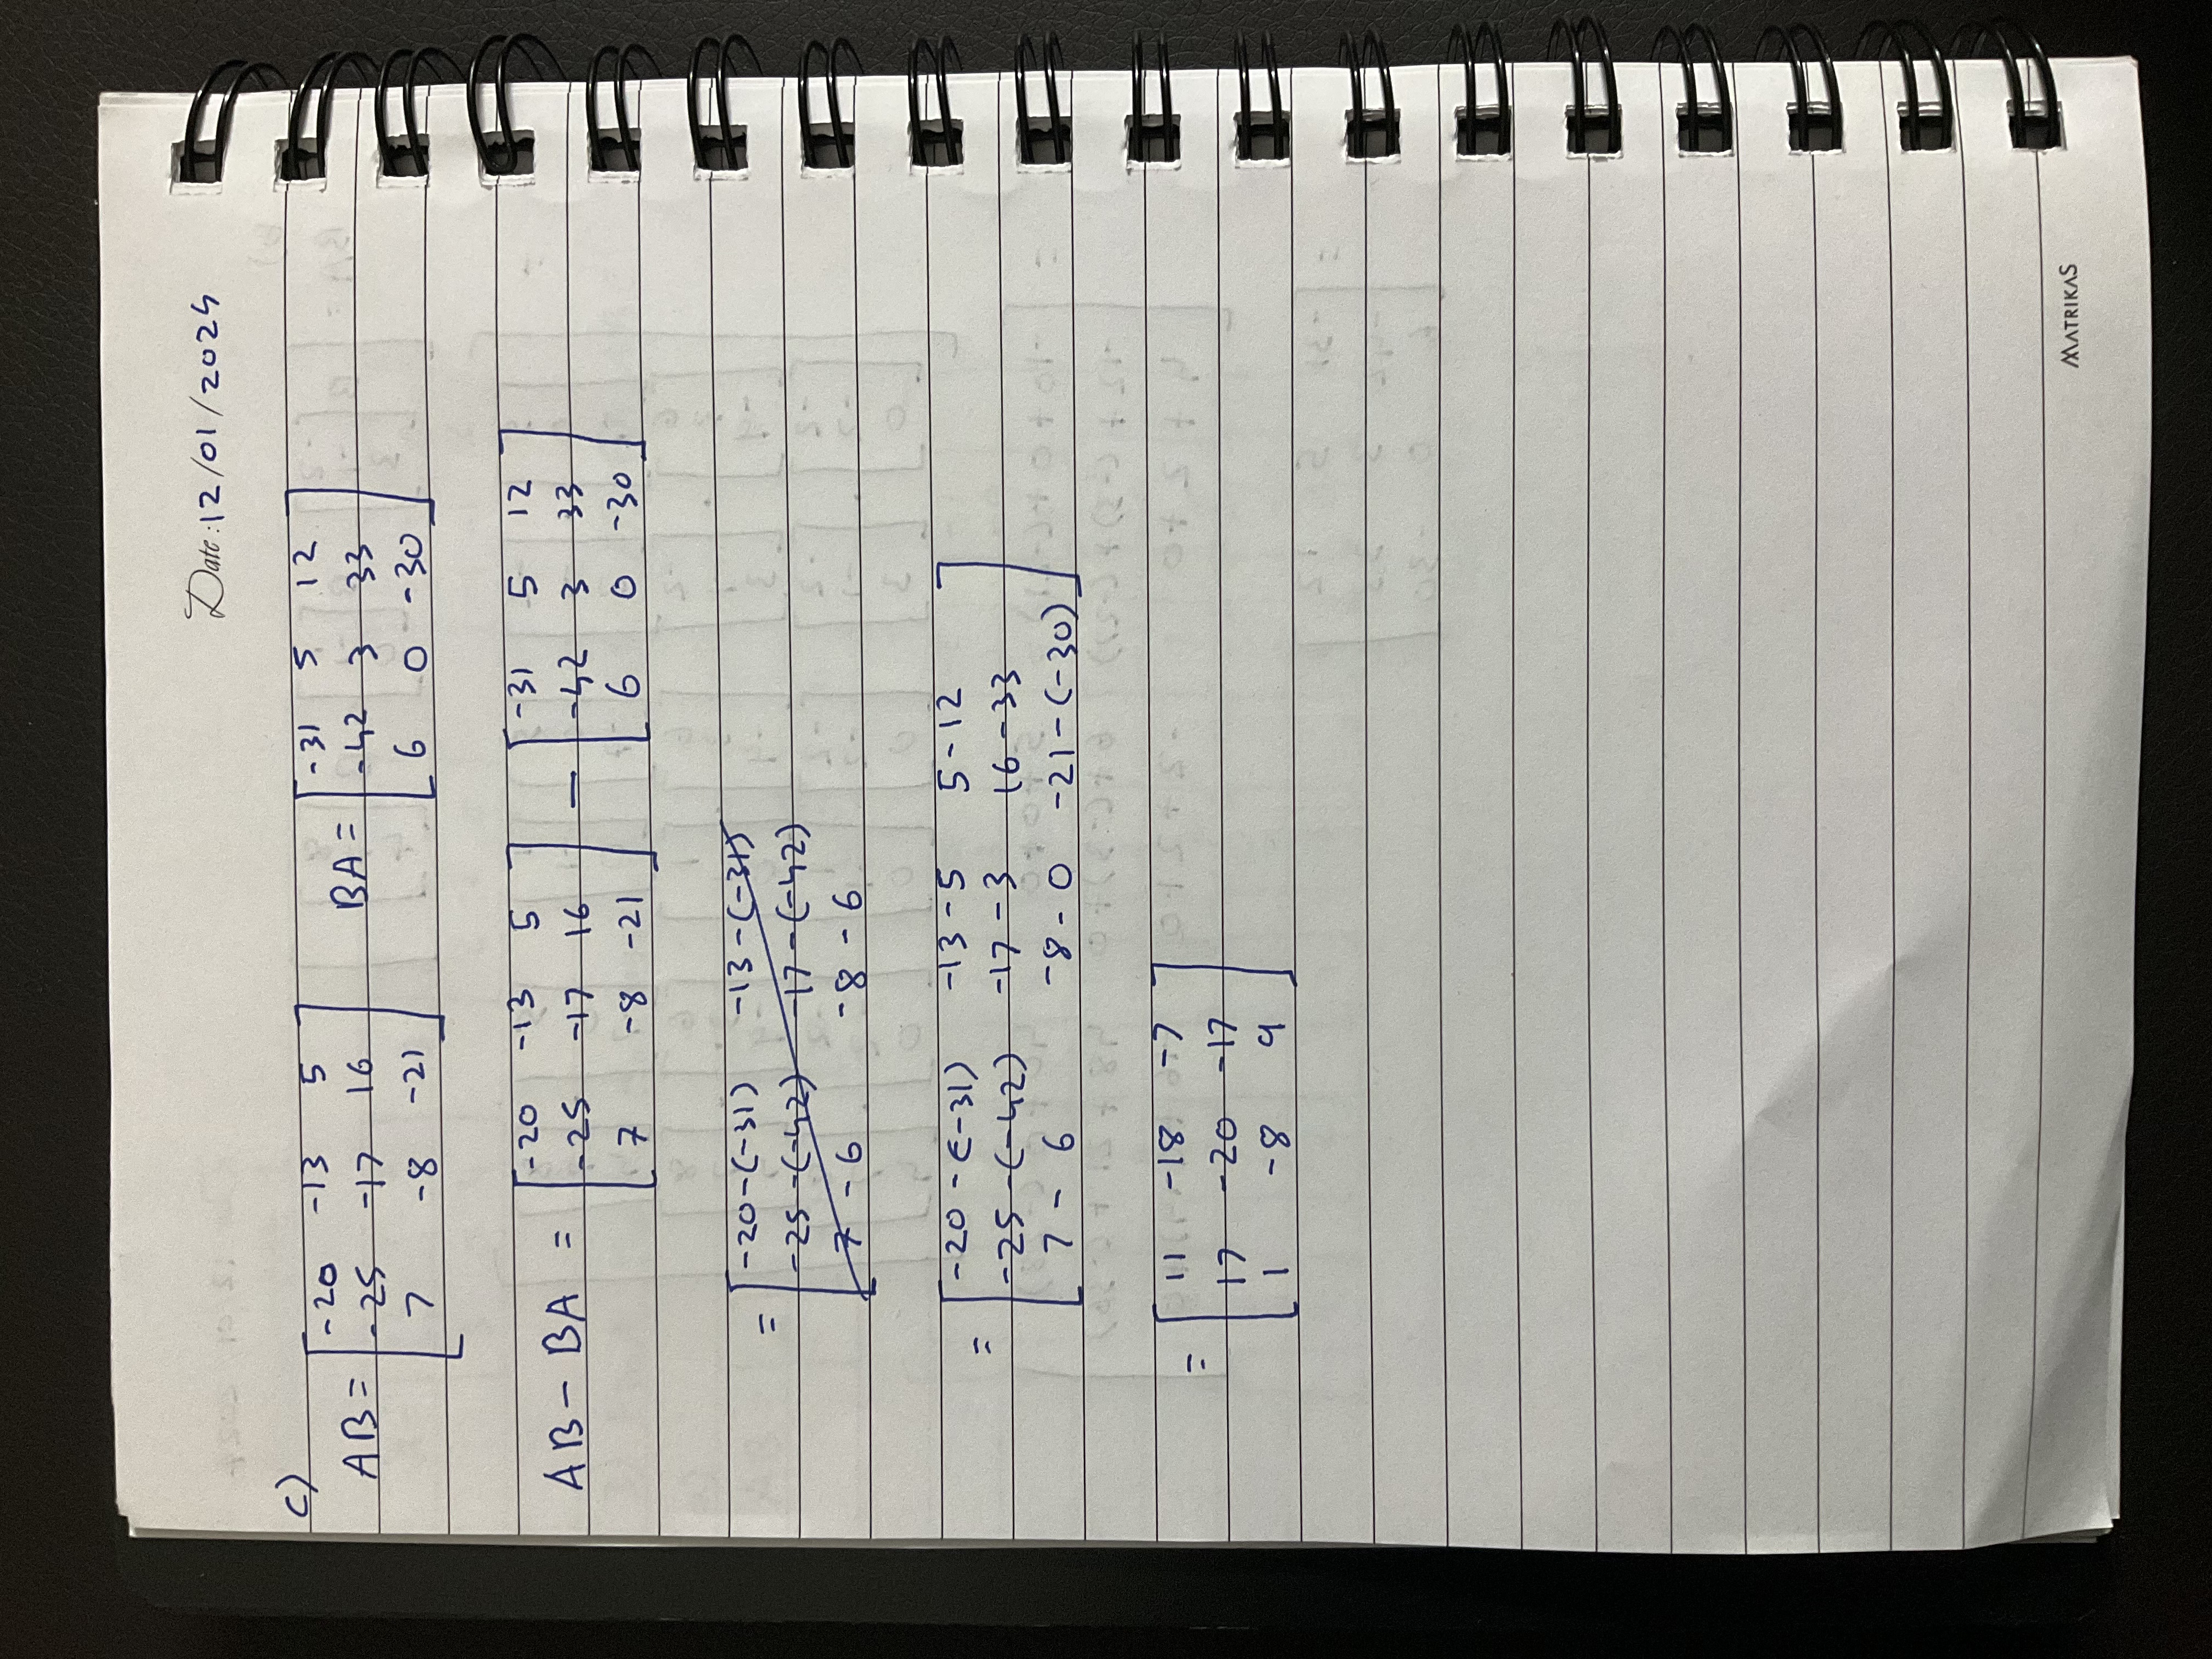 Date: 12/01/2024
c)
AB = [ -20 -13 5
-25 -17 16
7 -8 -21 ]
BA = [ -31 5 12
-42 3 33
6 0 -30 ]
AB - BA = [ -20 -13 5
-25 -17 16
7 -8 -21 ]
- [ -31 5 12
-42 3 33
6 0 -30 ]
= [ -20-(-31) -13-(-31)
-25-(-42) -17-(-42)
7 - 6 -8 - 6
= [ -20-(-31) -13-5 5-12
-25-(-42) -17-3 16-33
7 - 6 -8 - 0 -21-(-30) ]
= [ 11 -18 -7
17 -20 -17
1 -8 9 ]
MATRIKAS